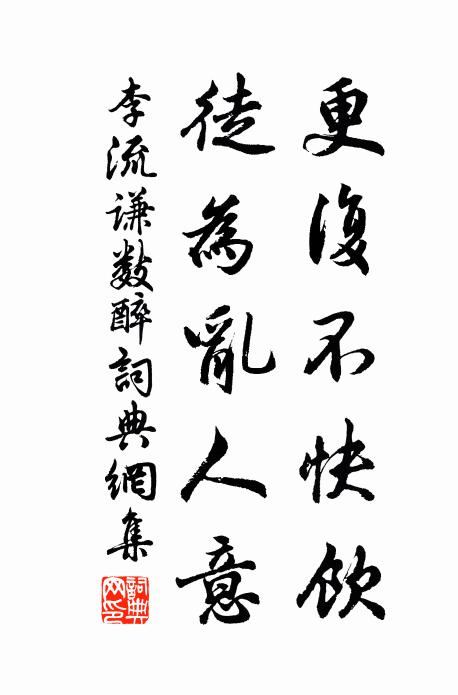 更復不快飲
徒為亂人意
李流謙數醉詞典網集
詞典網印